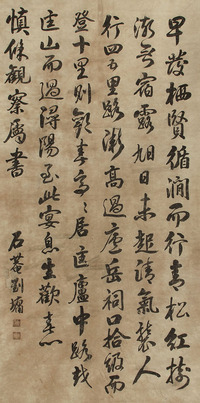 早發栖賢循澗而行青松紅樹
漱石宿露旭日未起清氣襲人
行四五里路漸高過廬岳祠口拾級而
登十里則歸宗寺寺居匡廬中路
匡山而過潯陽至此宴息生歡喜心
慎修觀察屬書
石菴劉墉